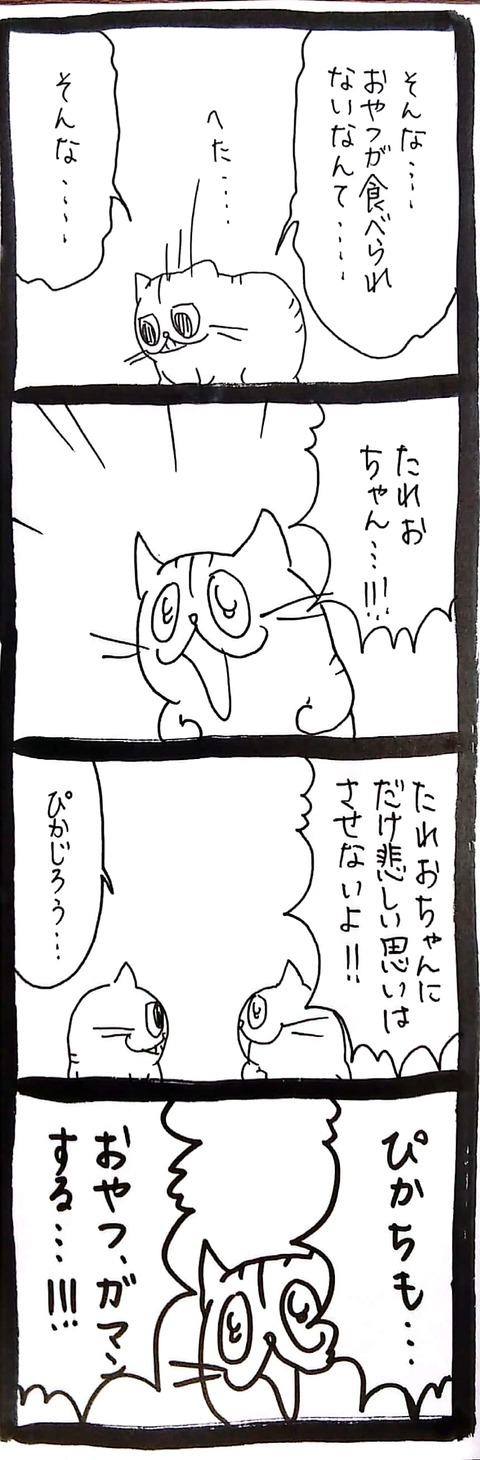 そんな……
おやつが食べられ
ないなんて……
へた……
そんな……
たれお
ちゃん…!!!
たれおちゃんに
だけ悲しい思いは
させないよ!!
ぴかじろう…
ぴかちも…
おやつ、ガマン
する…!!!